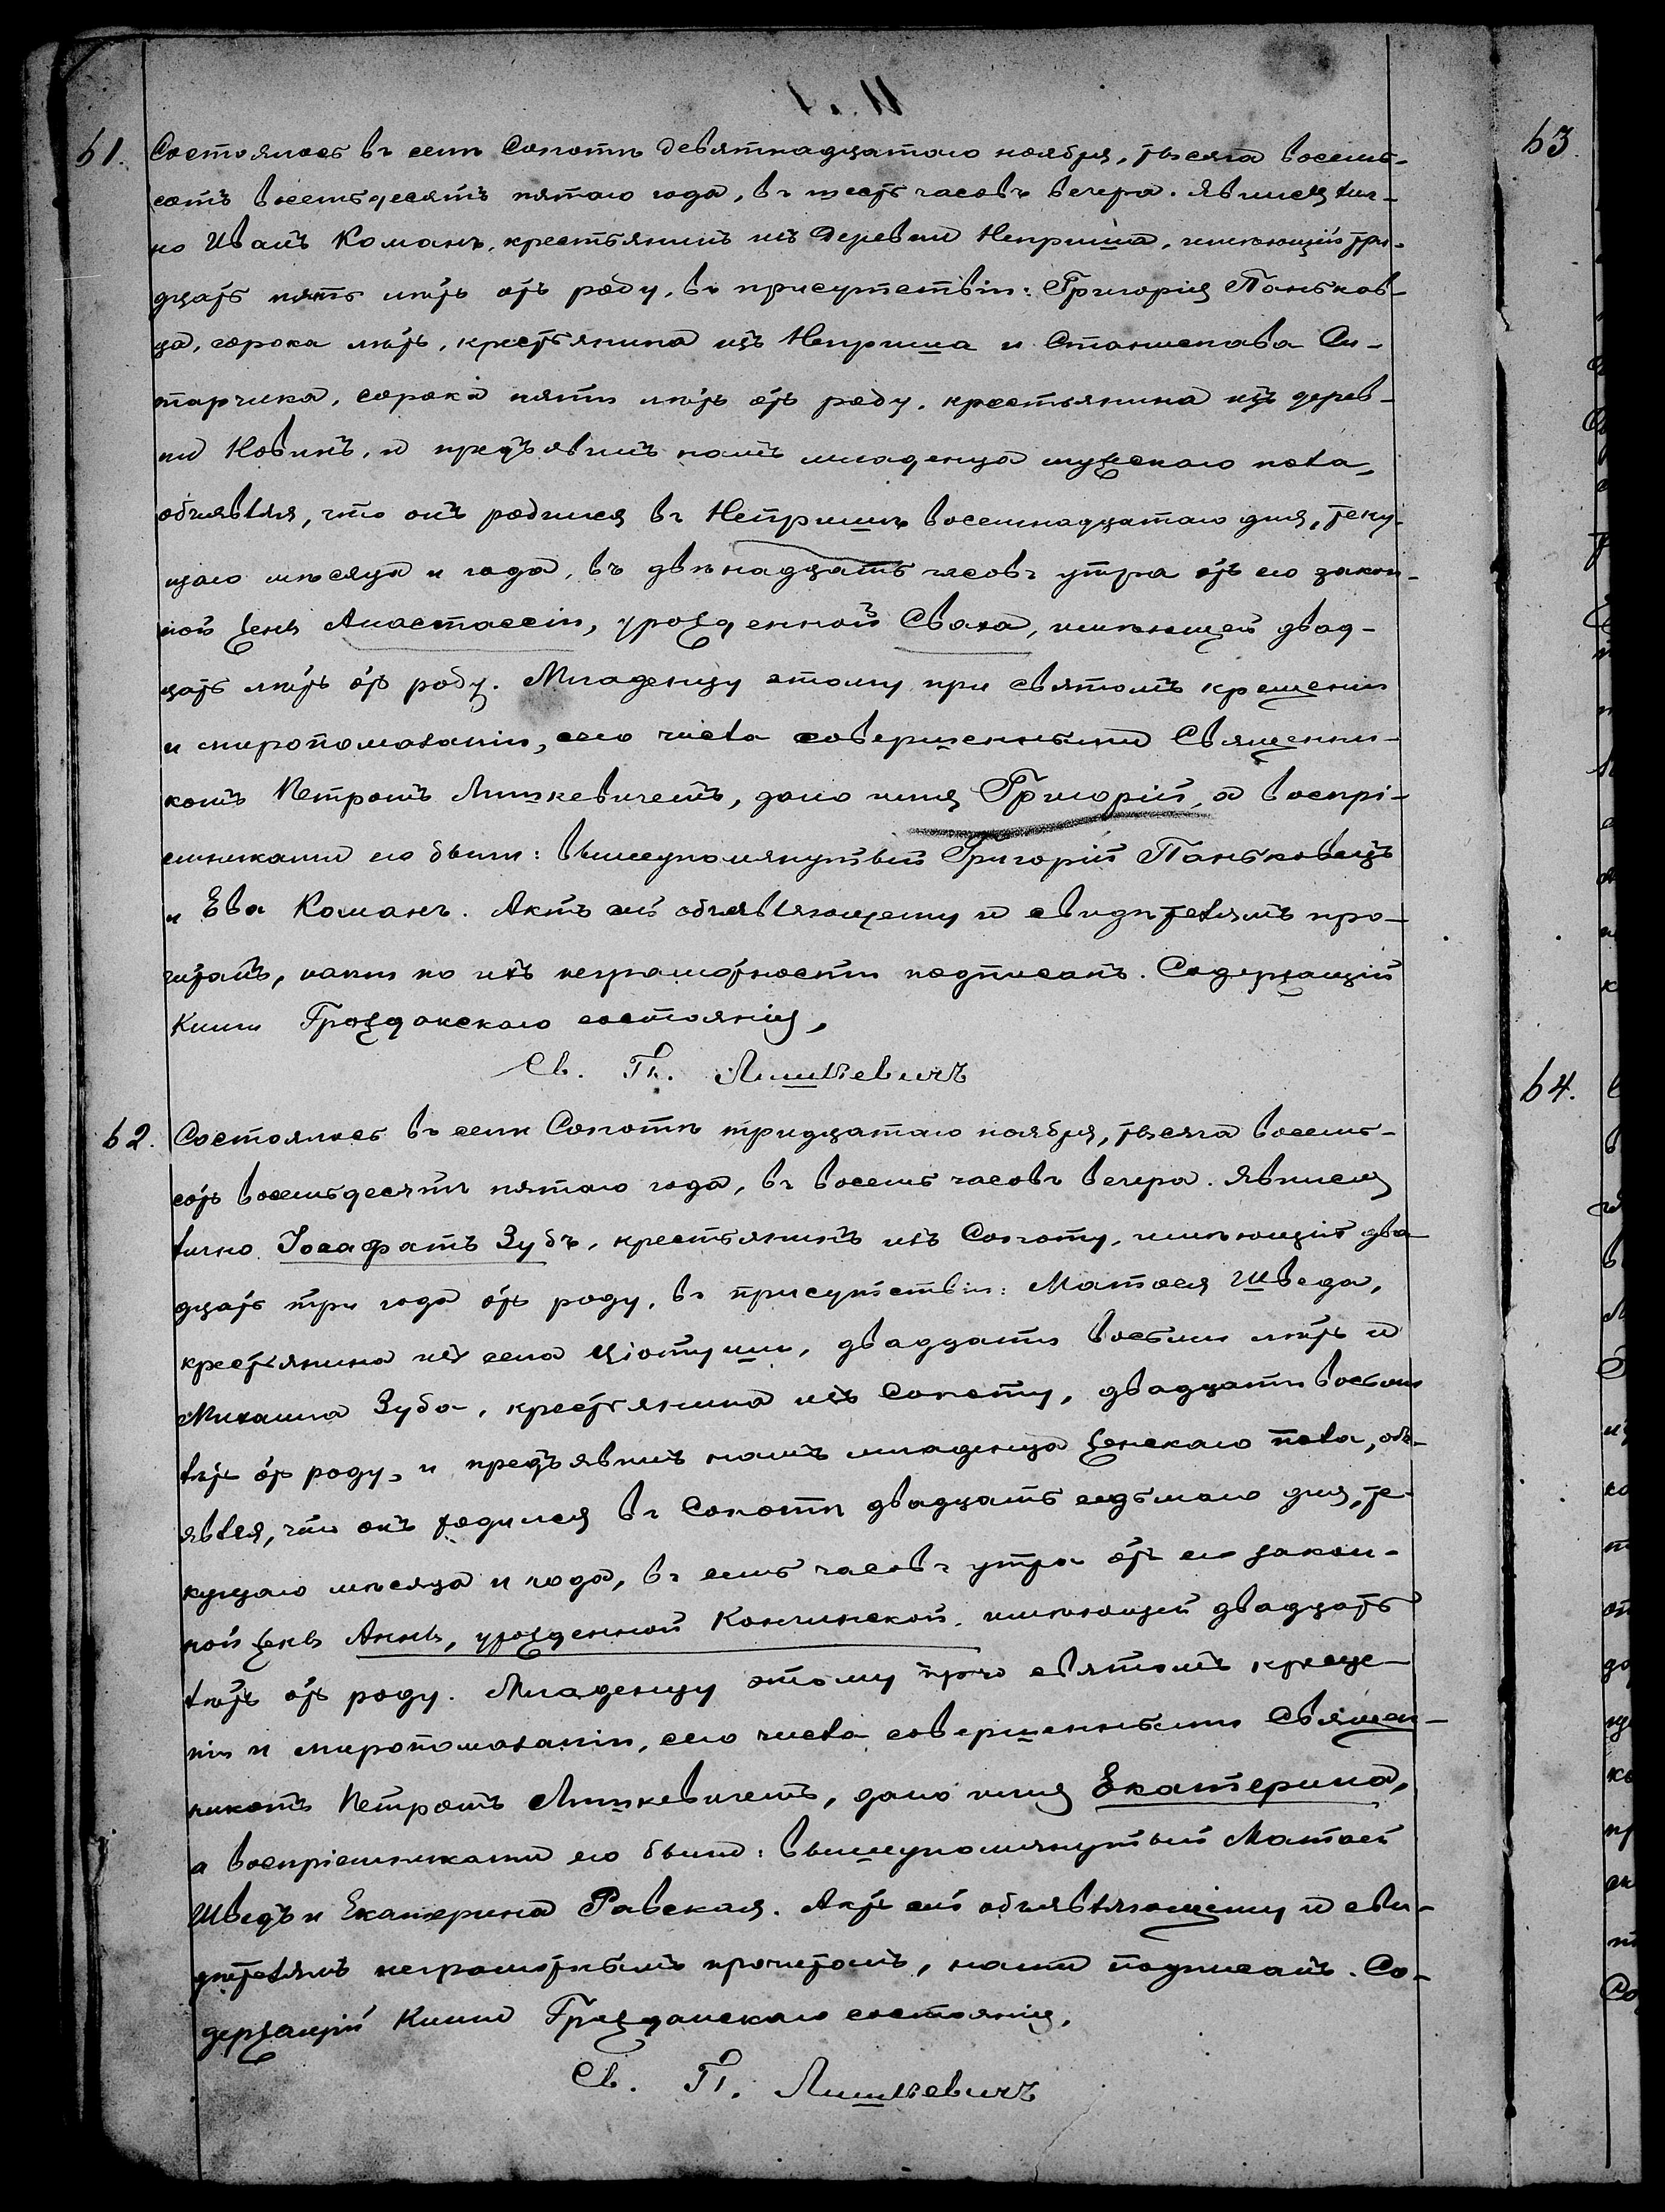 61. Состоялось въ селѣ Сопотѣ девятнадцатаго ноября, тысяча восемь-
сотъ восемьдесятъ пятаго года, въ шесть часовъ вечера. Явился лич-
но Иванъ Команъ, крестьянинъ изъ деревни Неприша, имѣющій три-
дцать пять лѣтъ отъ роду, въ присутствіи: Григорія Паньков-
ца, сорока лѣтъ, крестьянина изъ Неприша и Станислава Си-
тарчика, сорока пяти лѣтъ отъ роду, крестьянина изъ дерев-
ни Новинъ, и предъявилъ намъ младенца мужскаго пола,
объявляя, что онъ родился въ Непришѣ восемнадцатаго дня, теку-
щаго мѣсяца и года, въ двѣнадцать часовъ утра отъ его закон-
ной жены Анастассіи, урожденной Сваха, имѣющей двад-
цать лѣтъ отъ роду. Младенцу этому при святомъ крещеніи
и миропомазаніи, сего числа совершенными Священни-
комъ Петромъ Лишкевичемъ, дано имя Григорій, а воспрі-
емниками его были: вышеупомянутый Григорій Паньковецъ
и Ева Команъ. Актъ сей объявляющему и свидѣтелямъ про-
читанъ, нами по ихъ неграмотности подписанъ. Содержащій
Книги Гражданскаго состоянія,
Св. П. Лишкевичъ
62. Состоялось въ селѣ Сопотѣ тридцатаго ноября, тысяча восемь-
сотъ восемьдесятъ пятаго года, въ восемь часовъ вечера. Явился
лично Іосафатъ Зубъ, крестьянинъ изъ Сопоту, имѣющій два-
дцать три года отъ роду, въ присутствіи: Матѳея Шведа,
крестьянина изъ села Ціотуши, двадцати восьми лѣтъ и
Михаила Зуба, крестьянина изъ Сопоту, двадцати восьми
лѣтъ отъ роду, и предъявилъ намъ младенца женскаго пола, объ-
являя, что онъ родился въ Сопотѣ двадцать седьмаго дня, те-
кущаго мѣсяца и года, въ семь часовъ утра отъ его закон-
ной жены Анны, урожденной Кончинской, имѣющей двадцать
лѣтъ отъ роду. Младенцу этому при святомъ креще-
ніи и миропомазаніи, сего числа совершенными Священ-
никомъ Петромъ Лишкевичемъ, дано имя Екатерина,
а воспріемниками его были: вышеупомянутый Матѳей
Шведъ и Екатерина Равская. Актъ сей объявляющему и сви-
дѣтелямъ неграмотнымъ прочитанъ, нами подписанъ. Со-
держащій Книги Гражданскаго состоянія,
Св. П. Лишкевичъ
63.
64.